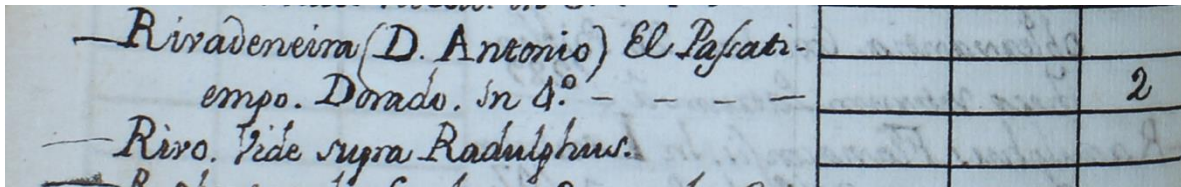 — Rivadeneira (D. Antonio) El Paſsati-
empo. Dorado. in 4.º – – – – – 2
— Rivo. Vide supra Radulphus.